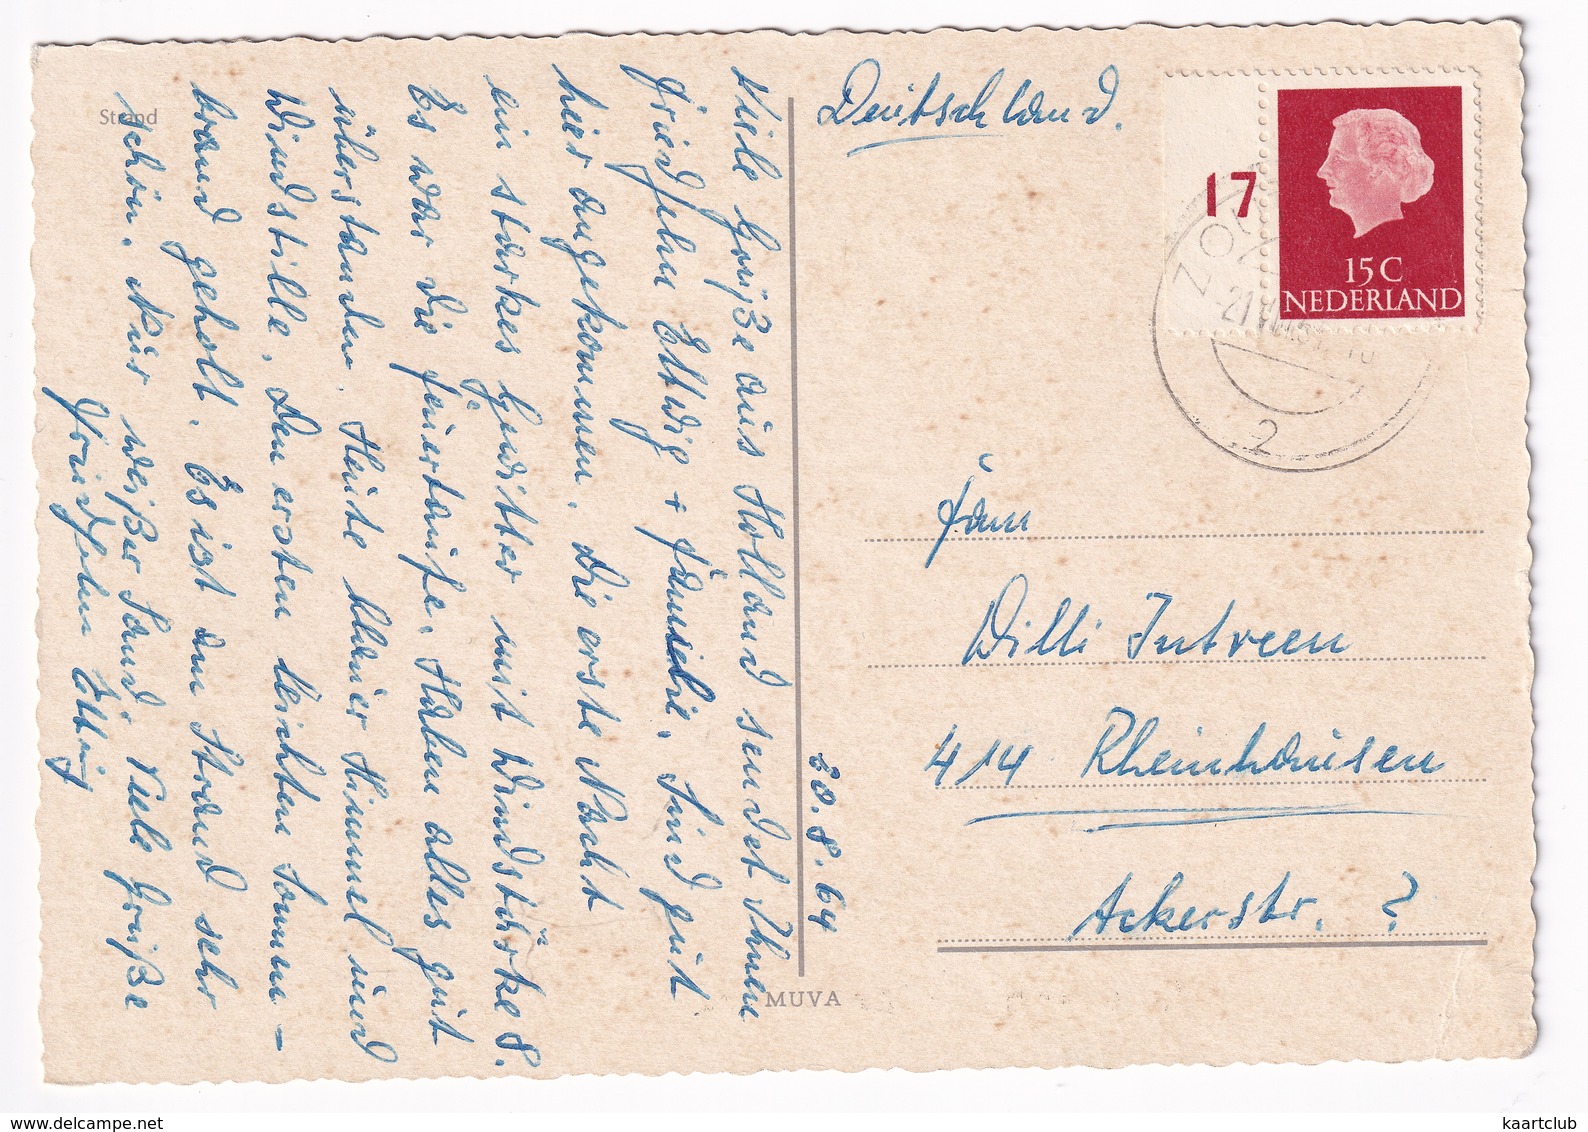 Strand
Viele Grüße aus Holland sendet Ihnen
Friedhelm Ettwig + Familie. Sind gut
hier angekommen. Die erste Nacht
ein starkes Gewitter mit Windstärke 8.
Es war die Feuertaufe. Haben alles gut
überstanden. Heute blauer Himmel und
Windstille. Den ersten leichten Sonnen-
brand geholt. Es ist am Strand sehr
schön. Nur weißer Sand. Viele Grüße
Friedhelm Ettwig
20.8.64
MUVA
Deutschland.
17
15 C
NEDERLAND
2
Frau
Willi Intveen
414 Rheinhausen
Ackerstr. ?
www.delcampe.net
kaartclub